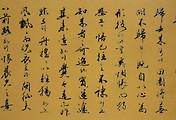 歸去來兮田園將蕪
胡不歸既自以心為
形役奚惆悵而獨悲
悟已往之不諫
知來者之可追實迷途
其未遠覺今是而昨非
舟遙遙以輕颺
風飄飄而吹衣問征夫
以前路恨晨光之熹